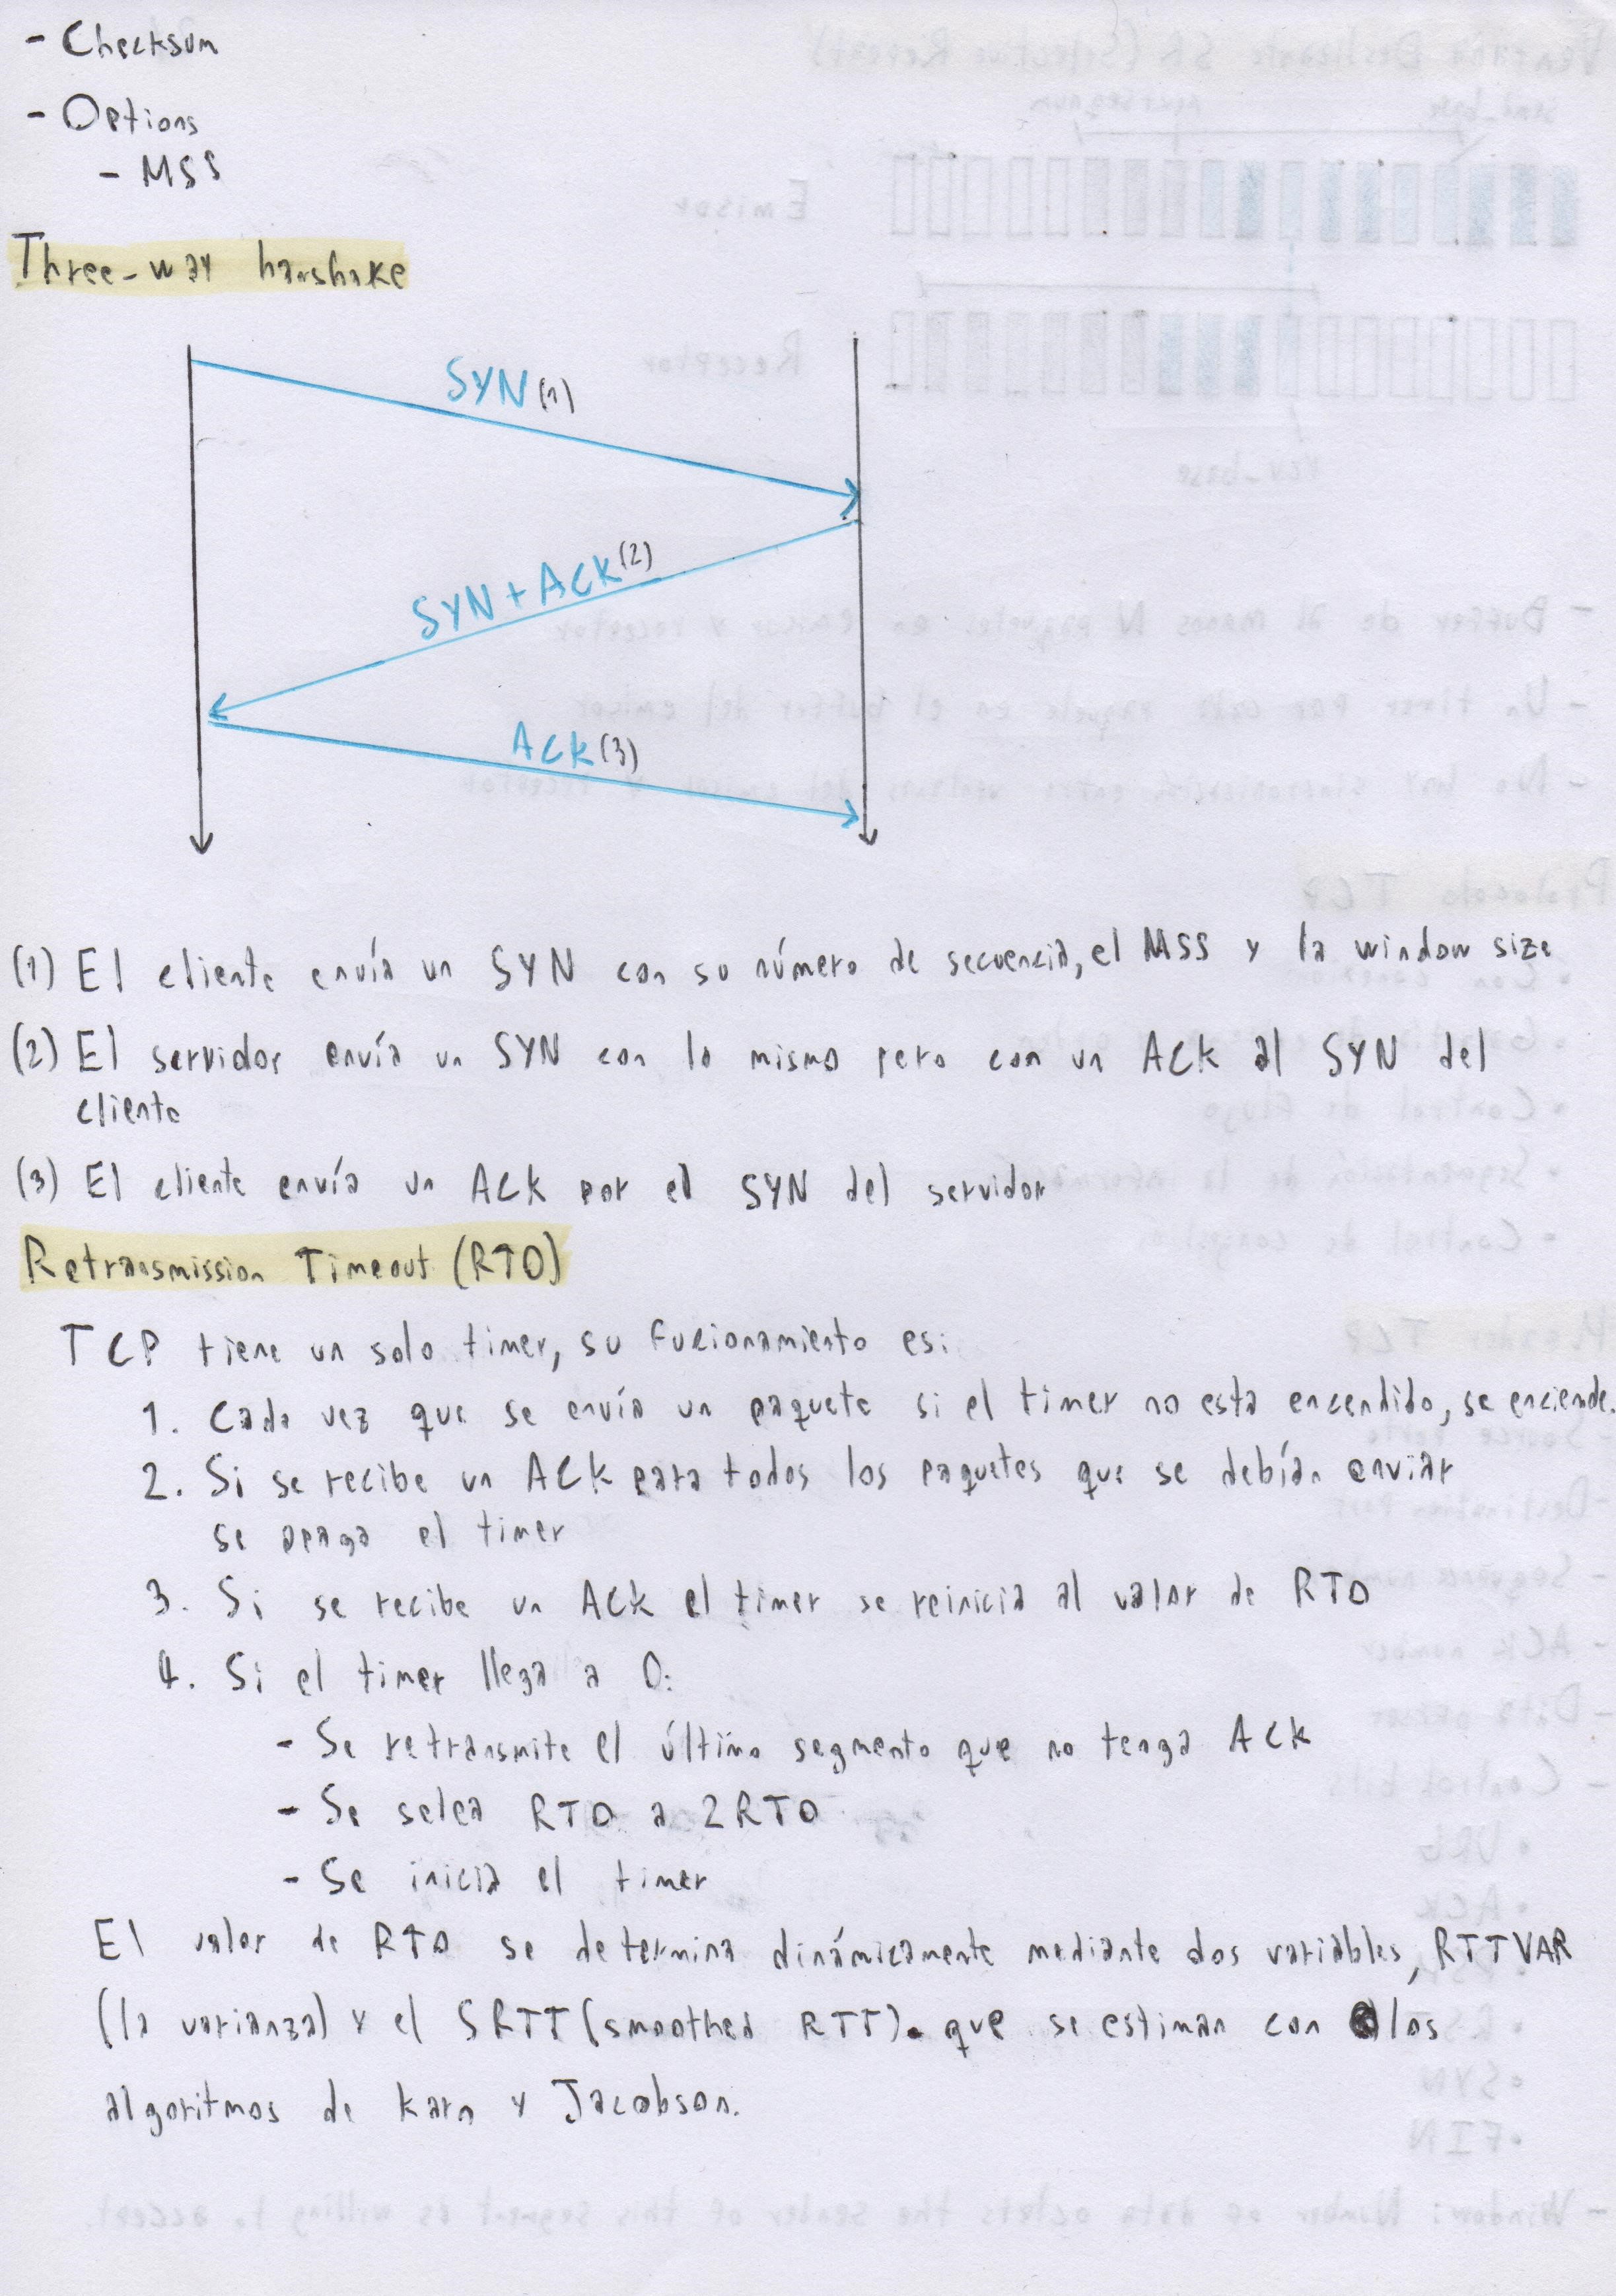 - Checksum
- Options
- MSS
Three-way hanshake
SYN (1)
SYN + ACK (2)
ACK (3)
(1) El cliente envía un SYN con su número de secuencia, el MSS y la window size
(2) El servidor envía un SYN con lo mismo pero con un ACK al SYN del
cliente
(3) El cliente envía un ACK por el SYN del servidor
Retransmission Timeout (RTO)
TCP tiene un solo timer, su funcionamiento es:
1. Cada vez que se envía un paquete si el timer no esta encendido, se enciende.
2. Si se recibe un ACK para todos los paquetes que se debían enviar
se apaga el timer
3. Si se recibe un ACK el timer se reinicia al valor de RTO
4. Si el timer llega a 0:
- Se retransmite el último segmento que no tenga ACK
- Se setea RTO a 2RTO
- Se inicia el timer
El valor de RTO se determina dinámicamente mediante dos variables, RTTVAR
(la varianza) y el SRTT (smoothed RTT). que se estiman con los
algoritmos de Karn y Jacobson.